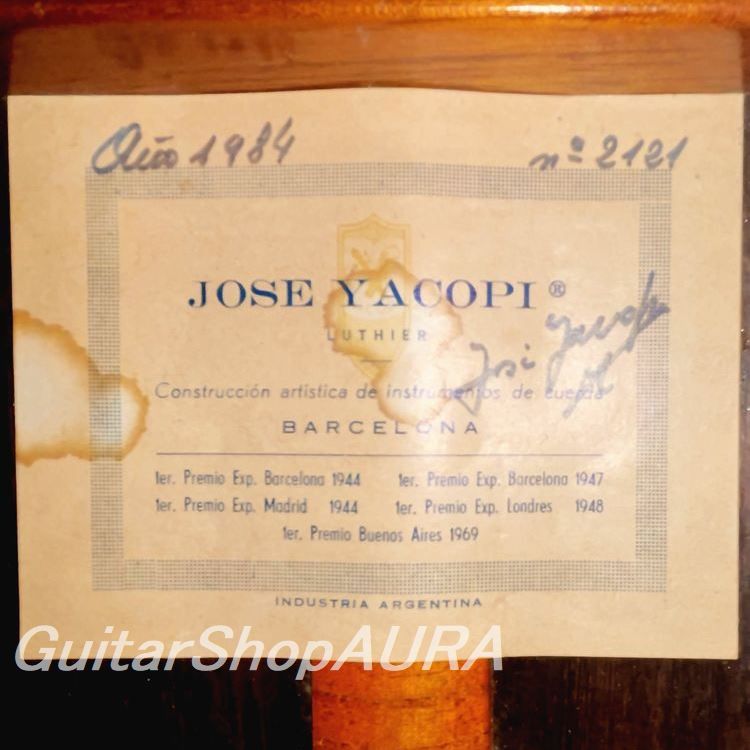 Año 1984 nº 2121
JOSE YACOPI ®
LUTHIER
José Yacopi
Construcción artística de instrumentos de cuerda
BARCELONA
1er. Premio Exp. Barcelona 1944 1er. Premio Exp. Barcelona 1947
1er. Premio Exp. Madrid 1944 1er. Premio Exp. Londres 1948
1er. Premio Buenos Aires 1969
INDUSTRIA ARGENTINA
GuitarShopAURA